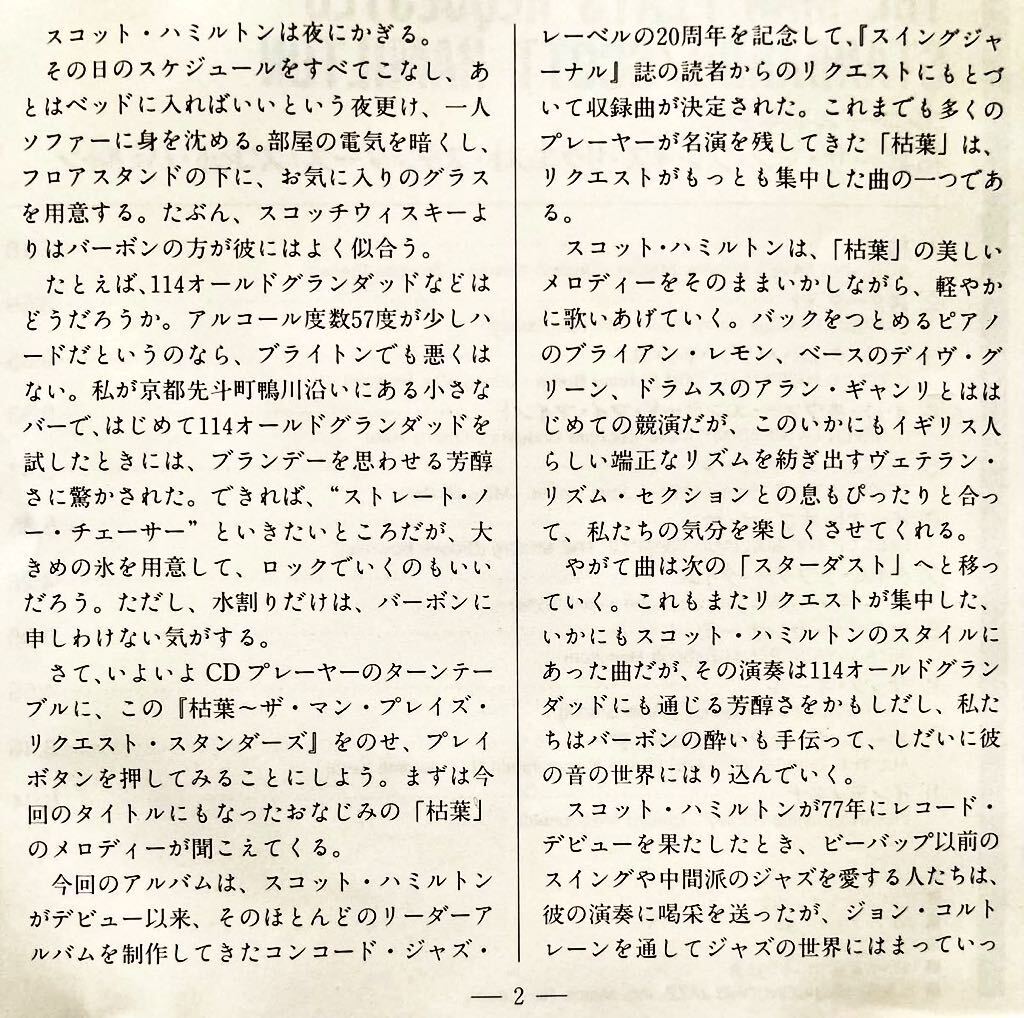 スコット・ハミルトンは夜にかぎる。
その日のスケジュールをすべてこなし、あ
とはベッドに入ればいいという夜更け、一人
ソファーに身を沈める。部屋の電気を暗くし、
フロアスタンドの下に、お気に入りのグラス
を用意する。たぶん、スコッチウィスキーよ
りはバーボンの方が彼にはよく似合う。
たとえば、114オールドグランダッドなどは
どうだろうか。アルコール度数57度が少しハ
ードだというのなら、ブライトンでも悪くは
ない。私が京都先斗町鴨川沿いにある小さな
バーで、はじめて114オールドグランダッドを
試したときには、ブランデーを思わせる芳醇
さに驚かされた。できれば、“ストレート・ノ
ー・チェーサー”といきたいところだが、大
きめの氷を用意して、ロックでいくのもいい
だろう。ただし、水割りだけは、バーボンに
申しわけない気がする。
さて、いよいよCDプレーヤーのターンテー
ブルに、この『枯葉〜ザ・マン・プレイズ・
リクエスト・スタンダーズ』をのせ、プレイ
ボタンを押してみることにしよう。まずは今
回のタイトルにもなったおなじみの「枯葉」
のメロディーが聞こえてくる。
今回のアルバムは、スコット・ハミルトン
がデビュー以来、そのほとんどのリーダーア
ルバムを制作してきたコンコード・ジャズ・
レーベルの20周年を記念して、『スイングジャ
ーナル』誌の読者からのリクエストにもとづ
いて収録曲が決定された。これまでも多くの
プレーヤーが名演を残してきた「枯葉」は、
リクエストがもっとも集中した曲の一つであ
る。
スコット・ハミルトンは、「枯葉」の美しい
メロディーをそのままいかしながら、軽やか
に歌いあげていく。バックをつとめるピアノ
のブライアン・レモン、ベースのデイヴ・グ
リーン、ドラムスのアラン・ギャンリとははは
じめての競演だが、このいかにもイギリス人
らしい端正なリズムを紡ぎ出すヴェテラン・
リズム・セクションとの息もぴったりと合っ
て、私たちの気分を楽しくさせてくれる。
やがて曲は次の「スターダスト」へと移っ
ていく。これもまたリクエストが集中した、
いかにもスコット・ハミルトンのスタイルに
あった曲だが、その演奏は114オールドグラン
ダッドにも通じる芳醇さをかもしだし、私た
ちはバーボンの酔いも手伝って、しだいに彼
の音の世界にはり込んでいく。
スコット・ハミルトンが77年にレコード・
デビューを果たしたとき、ビーバップ以前の
スイングや中間派のジャズを愛する人たちは、
彼の演奏に喝采を送ったが、ジョン・コルト
レーンを通してジャズの世界にはまっていっ
— 2 —